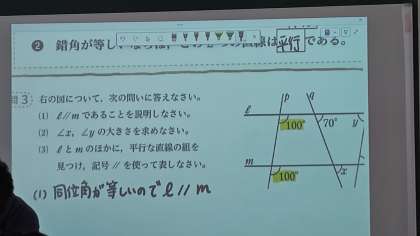 ❷ 錯角が等しい 直線は平行である。
問3 右の図について，次の問いに答えなさい。
(1) ℓ//mであることを説明しなさい。
(2) ∠x，∠yの大きさを求めなさい。
(3) ℓとmのほかに，平行な直線の組を
見つけ，記号//を使って表しなさい。
(1) 同位角が等しいのでℓ//m
p
q
ℓ
100°
70°
y
m
100°
x